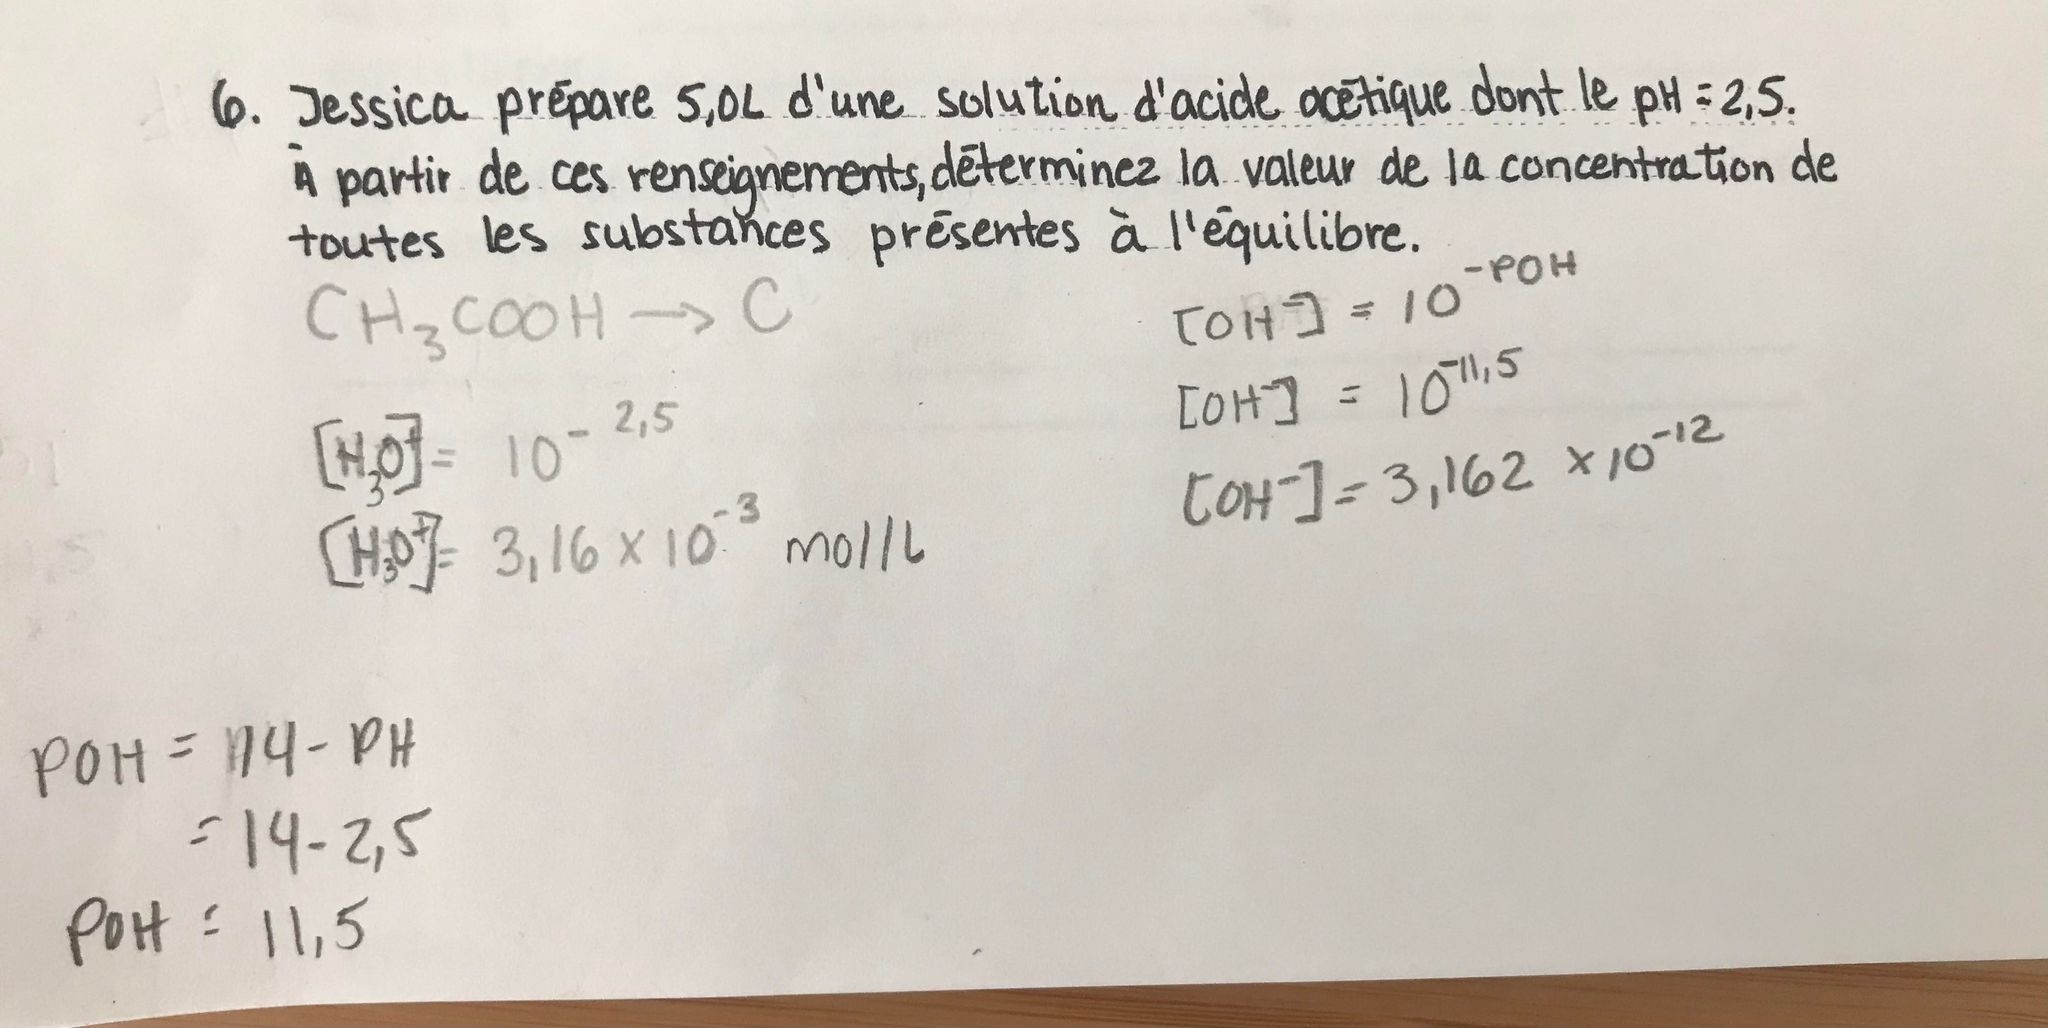 6. Jessica prépare 5,0L d'une solution d'acide acétique dont le pH = 2,5.
À partir de ces renseignements, déterminez la valeur de la concentration de
toutes les substances présentes à l'équilibre.
CH₃COOH → C
[H₃O⁺] = 10⁻ ²,⁵
[H₃O⁺] = 3,16 × 10⁻³ mol/L
[OH⁻] = 10^-POH
[OH⁻] = 10^-11,5
[OH⁻] = 3,162 × 10⁻¹²
POH = 14 - PH
= 14 - 2,5
POH = 11,5